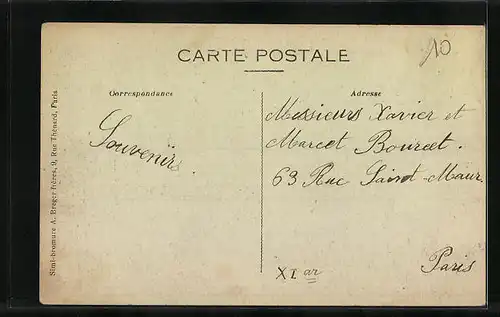 CARTE POSTALE
10
Correspondance
Adresse
Souvenirs
Messieurs Xavier et
Marcel Bourcet.
63 Rue Saint-Maur.
Paris
XI ar
Simi-bromure A. Breger frères, 9, Rue Thénard, Paris